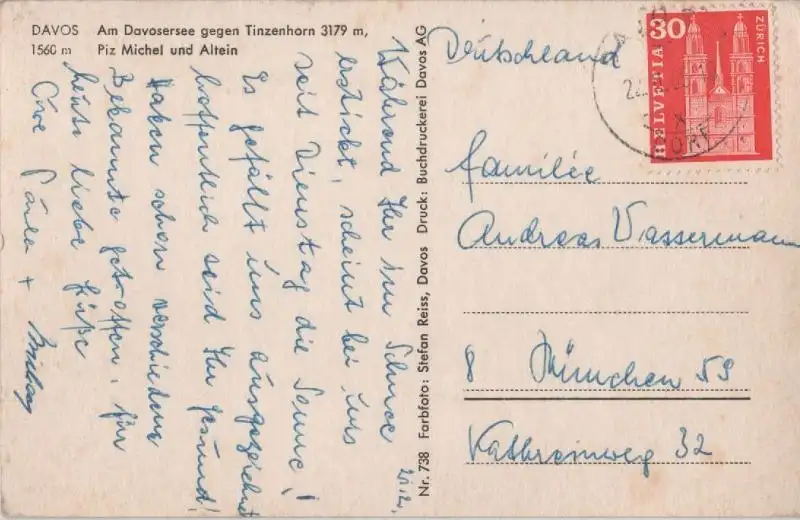 DAVOS Am Davosersee gegen Tinzenhorn 3179 m,
1560 m Piz Michel und Altein
20.12.
Während Ihr im Schnee
erstickt, scheint bei uns
seit Dienstag die Sonne!
Es gefällt uns ausgezeichnet
hoffentlich seid Ihr gesund!
Haben schon verschiedene
Bekannte getroffen. für
heute liebe Grüße
Eure +
Nr. 738 Farbfoto: Stefan Reiss, Davos Druck: Buchdruckerei Davos AG
Deutschland
30
HELVETIA
ZÜRICH
DORF
Familie
Andreas Wassermann
8 München 59
Kathreinweg 32